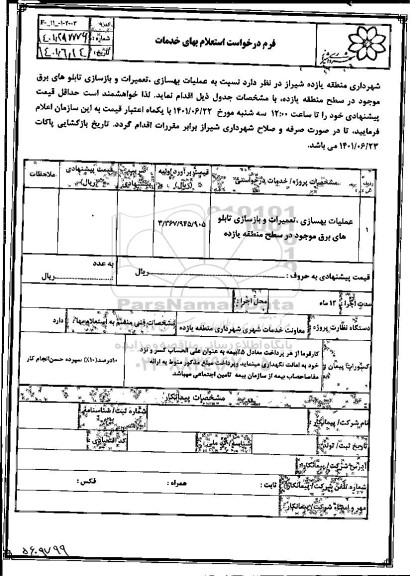 فرم درخواست استعلام بهای خدمات
شهرداری منطقه یازده شیراز در نظر دارد نسبت به عملیات بهسازی ،تعمیرات و بازسازی تابلو های برق
موجود در سطح منطقه یازده، با مشخصات جدول ذیل اقدام نماید. لذا خواهشمند است حداقل قیمت
پیشنهادی خود را تا ساعت ۱۲:۰۰ سه شنبه مورخ ۱۴۰۱/۰۶/۲۲ با یکماه اعتبار قیمت به این سازمان اعلام
فرمایید، تا در صورت صرفه و صلاح شهرداری شیراز برابر مقررات اقدام گردد. تاریخ بازگشایی پاکات
۱۴۰۱/۰۶/۲۳ می باشد.
ردیف
مشخصات پروژه/ خدمات
قیمت برآورد اولیه (ریال)
قیمت پیشنهادی (ریال)
ملاحظات
۱
عملیات بهسازی ،تعمیرات و بازسازی تابلو
های برق موجود در سطح منطقه یازده
۳/۳۶۷/۹۴۵/۹۰۵
قیمت پیشنهادی به حروف : ریال
به عدد
ریال
مدت اجرا: ۱۲ ماه
محل اجرا:
دستگاه نظارت پروژه: معاونت خدمات شهری شهرداری منطقه یازده
مشخصات فنی منضم به استعلام بها: دارد
کارفرما از هر پرداخت معادل ۵٪بیمه به عنوان علی الحساب کسر و نزد
خود به امانت نگهداری مینماید وپرداخت مبلغ مذکور منوط به ارائه
مفاصاحساب بیمه از سازمان بیمه تامین اجتماعی میباشد
۱۰درصد(۱۰٪) سپرده حسن انجام کار
مشخصات پیمانکار
نام شرکت/ پیمانکار:
شماره ثبت/ شناسنامه:
تاریخ ثبت/ تولد:
شناسه/ کد ملی:
کد اقتصادی:
آدرس شرکت/ پیمانکار:
شماره تلفن شرکت/ پیمانکار:
ثابت :
همراه :
فکس :
مهر و امضاء شرکت/ پیمانکار:
۵۶۰۹۷۹۹